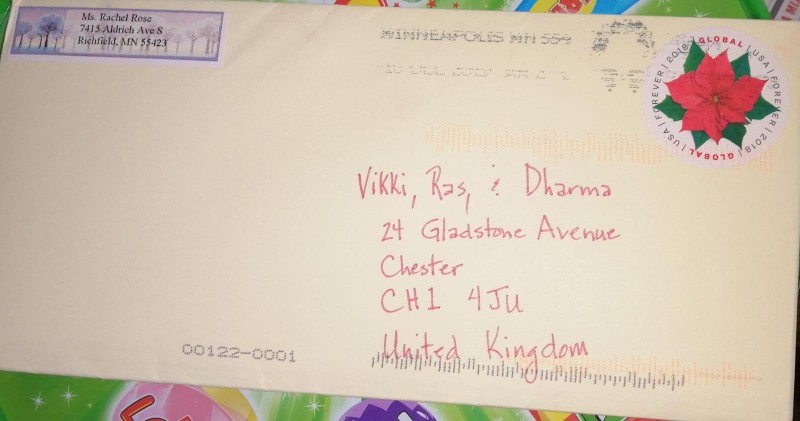 Ms. Rachel Rose
7415 Aldrich Ave S
Richfield, MN 55423
MINNEAPOLIS MN 554
GLOBAL | USA | FOREVER | 2018 | GLOBAL | USA | FOREVER | 2018
Vikki, Ras, & Dharma
24 Gladstone Avenue
Chester
CH1 4JU
United Kingdom
00122-0001